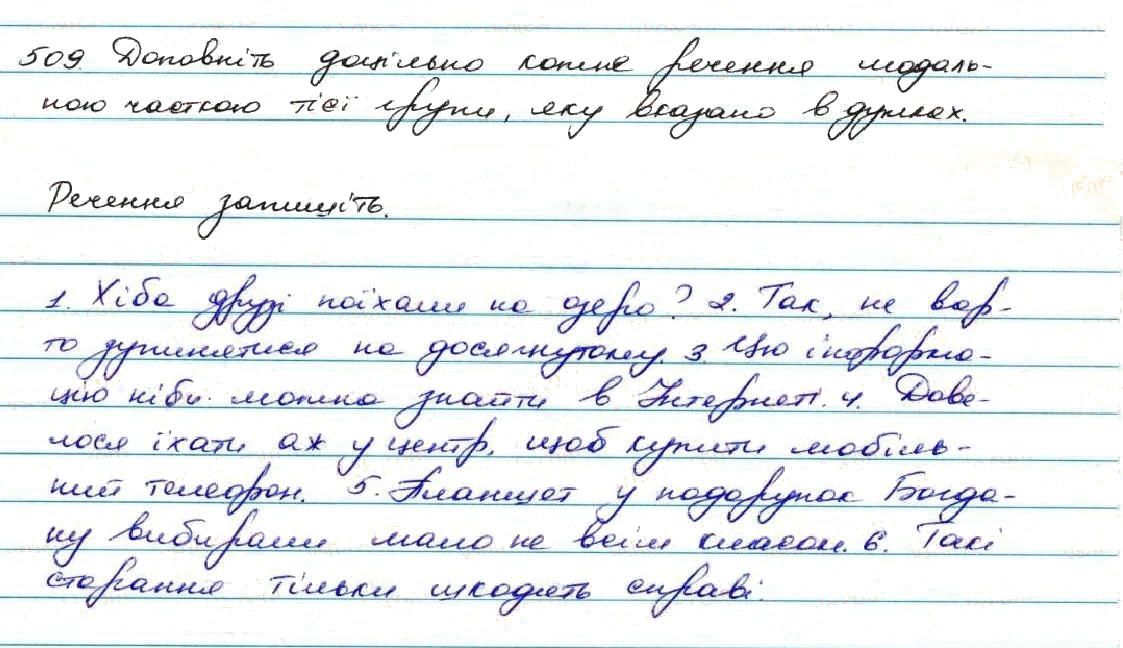 509. Доповніть доцільно кожне речення модаль-
ною часткою тієї групи, яку вказано в дужках.
Речення запишіть.
1. Хіба друзі поїхали на озеро? 2. Так, не вар-
то зупинятися на досягнутому. 3. Цю інформа-
цію ніби можна знайти в Інтернеті. 4. Дове-
лося їхати аж у центр, щоб купити мобіль-
ний телефон. 5. Планшет у подарунок Богда-
ну вибирали мало не всім класом. 6. Такі
старання тільки шкодять справі.